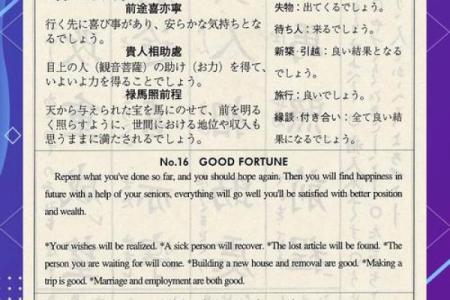 前途喜亦寧
行く先に喜び事があり、安らかな気持ちとな
るでしょう。
貴人相助處
目上の人（観音菩薩）の助け（お力）を得て、
いよいよ力を得ることでしょう。
禄馬照前程
天から与えられた宝を馬にのせて、前を明る
く照らすように、世間における地位や収入も
思うままに満たされるでしょう。
失物：出てくるでしょう。
待ち人：来るでしょう。
新築・引越：良い結果となる
でしょう。
旅行：良いでしょう。
縁談・付き合い：全て良い結
果になるでしょう。
No.16 GOOD FORTUNE
Repent what you've done so far, and you should hope again. Then you will find happiness in
future with a help of your seniors, everything will go well you'll be satisfied with better position
and wealth.
*Your wishes will be realized. *A sick person will recover. *The lost article will be found. *The
person you are waiting for will come. *Building a new house and removal are good. *Making a
trip is good. *Marriage and employment are both good.